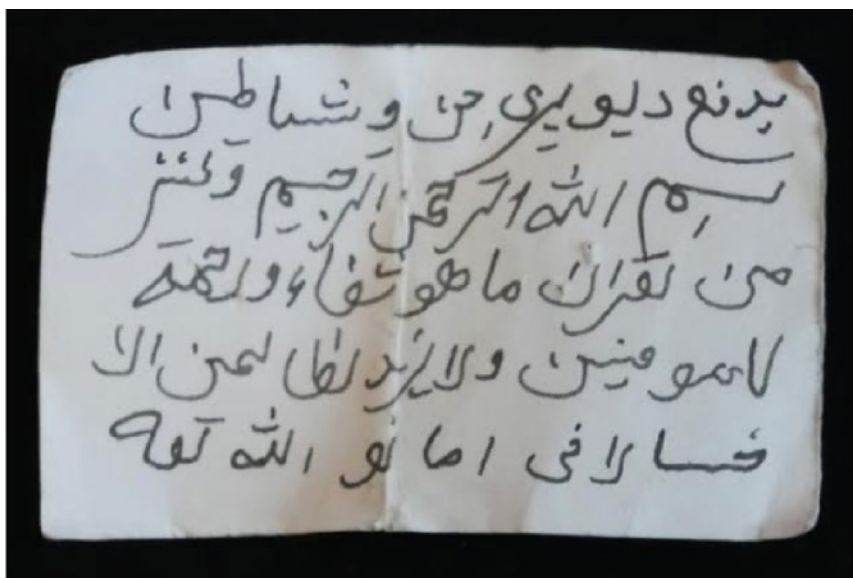 بدفع ديو پري جن و شياطين
بسم الله الرحمن الرحيم وننز
من لقران ما هو شفاء ورحمة
لامومنين ولا يزيد لظالمين الا
خسارا في اما نو الله